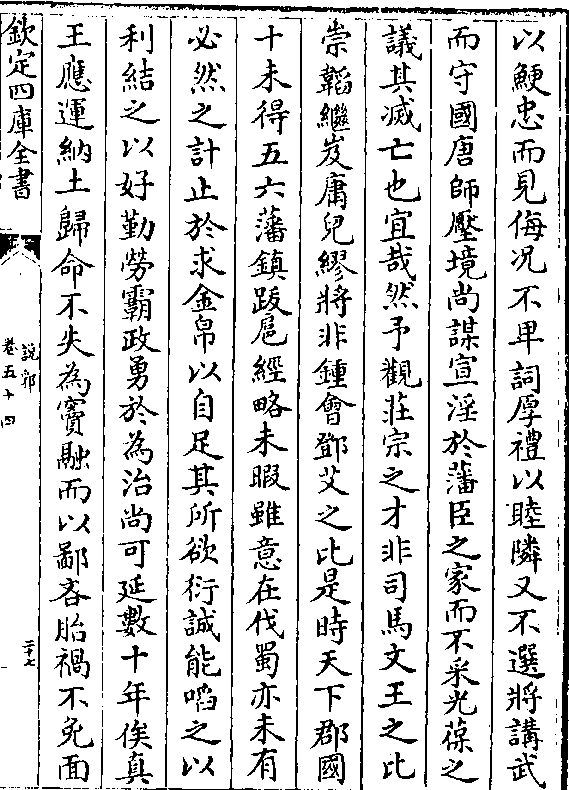 以鯁忠而見侮况不卑詞厚禮以睦隣又不選將講武
而守國唐師壓境尚謀宣淫於藩臣之家而不采光葆之
議其滅亡也宜哉然予觀莊宗之才非司馬文王之比
崇韜繼岌庸兒繆將非鍾會鄧艾之比是時天下郡國
十未得五六藩鎮跋扈經略未暇雖意在伐蜀亦未有
必然之計止於求金帛以自足其所欲衍誠能啗之以
利結之以好勤勞霸政勇於為治尚可延數十年俟真
王應運納土歸命不失為竇融而以鄙吝胎禍不免面
欽定四庫全書
說郛
卷五十四
二十七